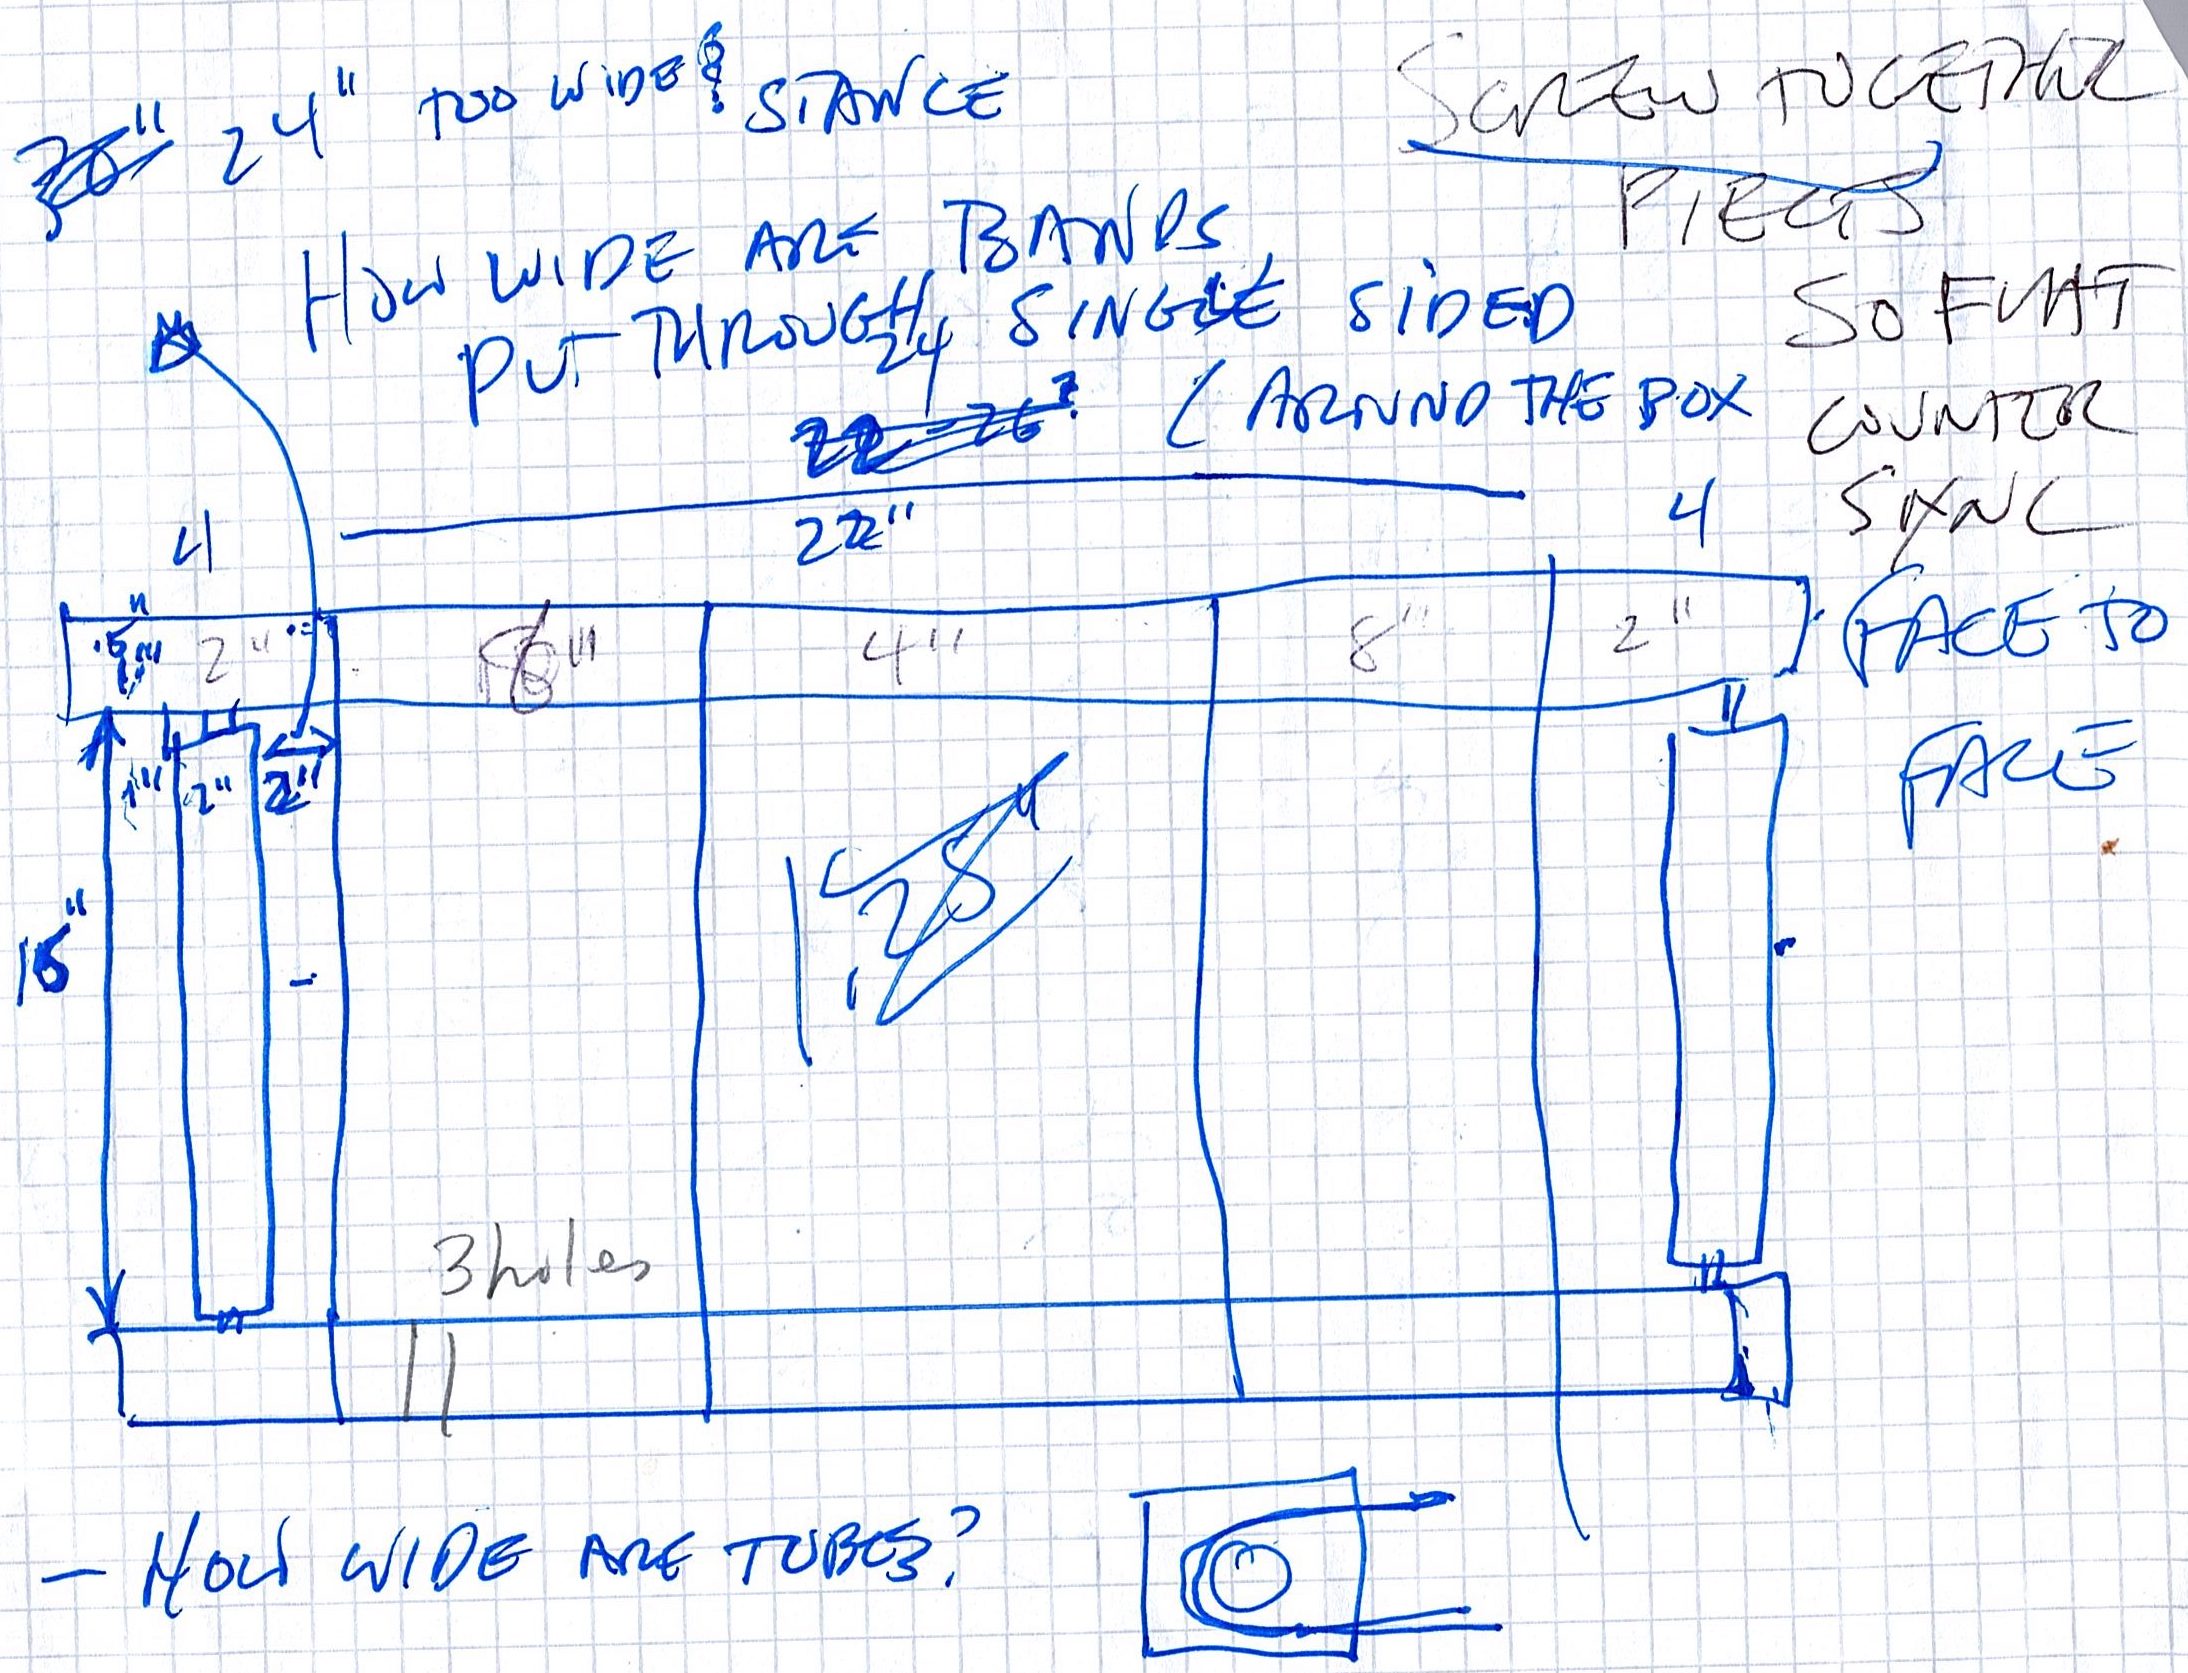 24" TOO WIDE? STANCE
HOW WIDE ARE BANDS
PUT THROUGH SINGLE SIDED
(AROUND THE BOX
24
22"
SCREW TOGETHER
PIECES
SO FLAT
COUNTER
SYNC
FACE TO
FACE
4
4
2"
4"
8"
2"
1"
2"
2"
28
3 holes
- HOW WIDE ARE TUBES?